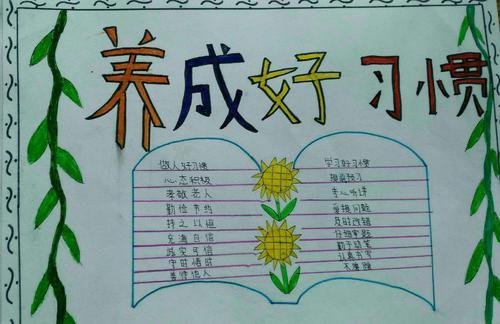 养成好习惯
做人好习惯
心态积极
孝敬老人
勤俭节约
持之以恒
充满自信
守时惜时
善待他人
学习好习惯
预习
专心听讲
爱提问题
及时改错
仔细审题
勤于动笔
认真书写
不磨蹭